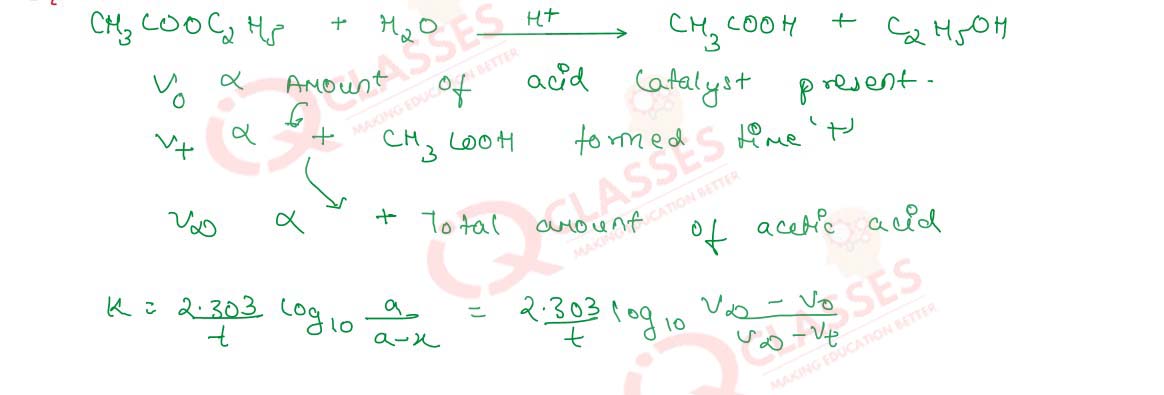 CH₃COOC₂H₅ + H₂O —H⁺→ CH₃COOH + C₂H₅OH
V₀ ∝ Amount of acid catalyst present.
Vₜ ∝ + CH₃COOH formed time 't'
V∞ ∝ + Total amount of acetic acid
K = 2.303/t log₁₀ a/a-x = 2.303/t log₁₀ V∞ - V₀/V∞ - Vₜ
CLASSES
MAKING EDUCATION BETTER
CLASSES
MAKING EDUCATION BETTER
CLASSES
MAKING EDUCATION BETTER